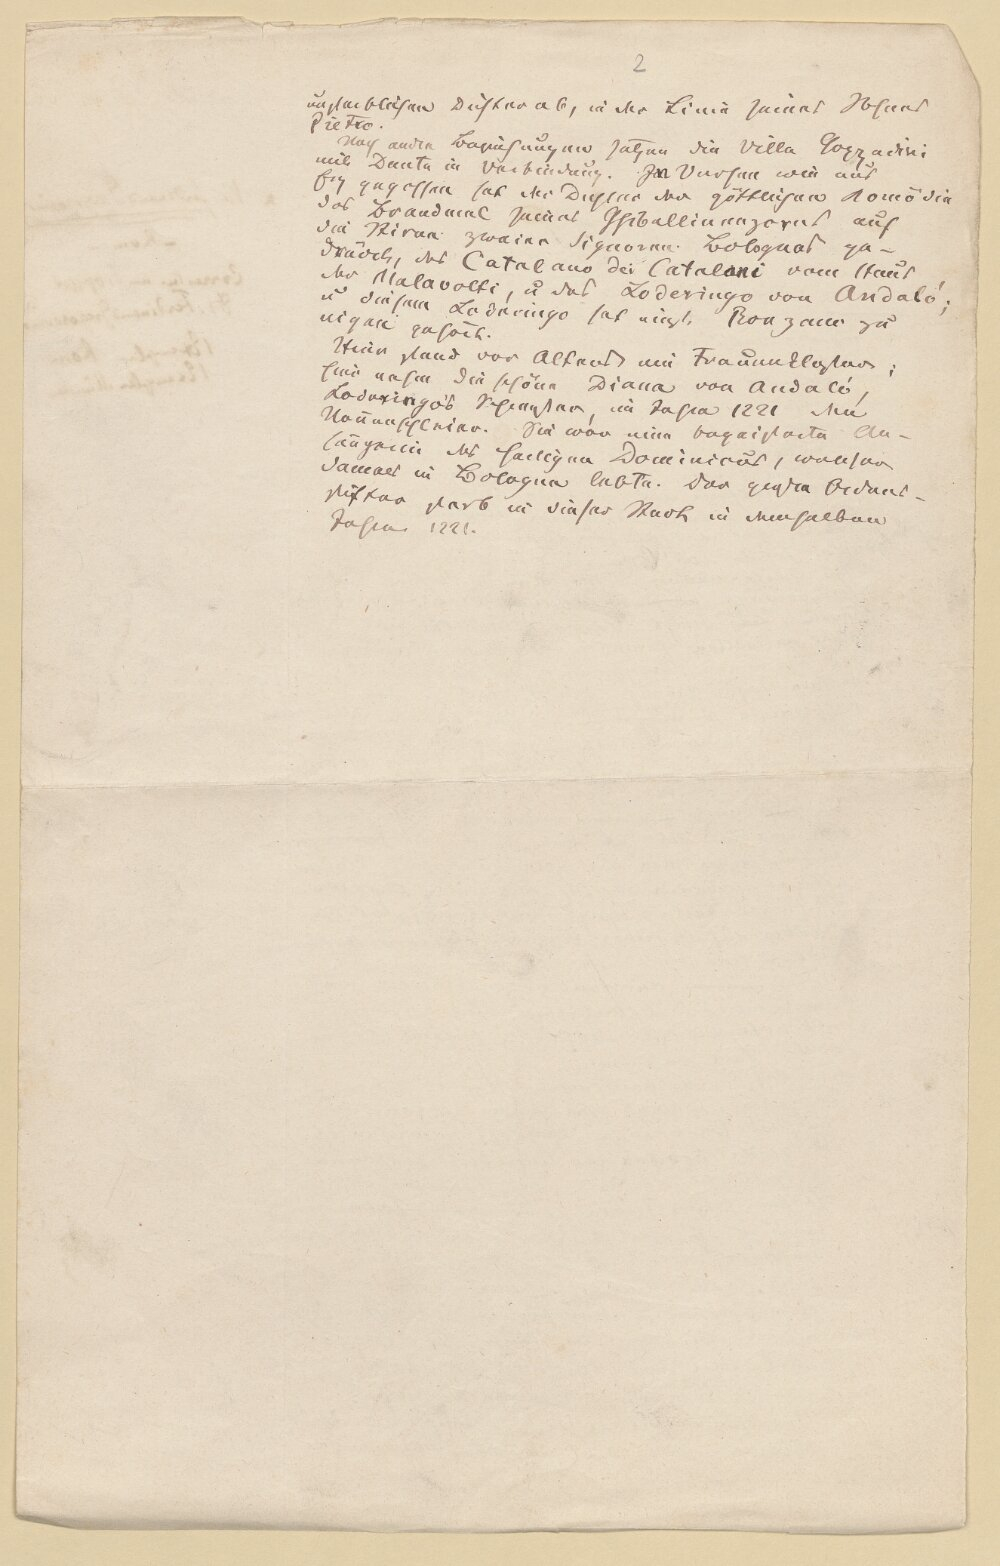 2
unsterblichen Dichter ab, in der Linie seines Sohnes
Pietro.
Noch andre Beziehungen setzen die Villa Gozzadini
mit Dante in Verbindung. In Versen wie aus
Erz gegossen hat der Dichter der göttlichen Komödie
das Brandmal seines Ghibellinenzorns auf
die Stirnen zweier Signoren Bolognas ge-
drückt, des Catalano dei Catalani vom Haus
der Malavolti, u des Loderingo von Andalò;
u diesem Loderingo hat einst Ronzano zu
eigen gehört.
Hier stand vor Alters ein Frauenkloster;
hier nahm die schöne Diana von Andalò,
Loderingo's Schwester, im Jahre 1221 den
Nonnenschleier. Sie war eine begeisterte An-
hängerin des heiligen Dominicus, welcher
damals in Bologna lebte. Der große Ordens-
stifter starb in dieser Stadt in demselben
Jahre 1221.